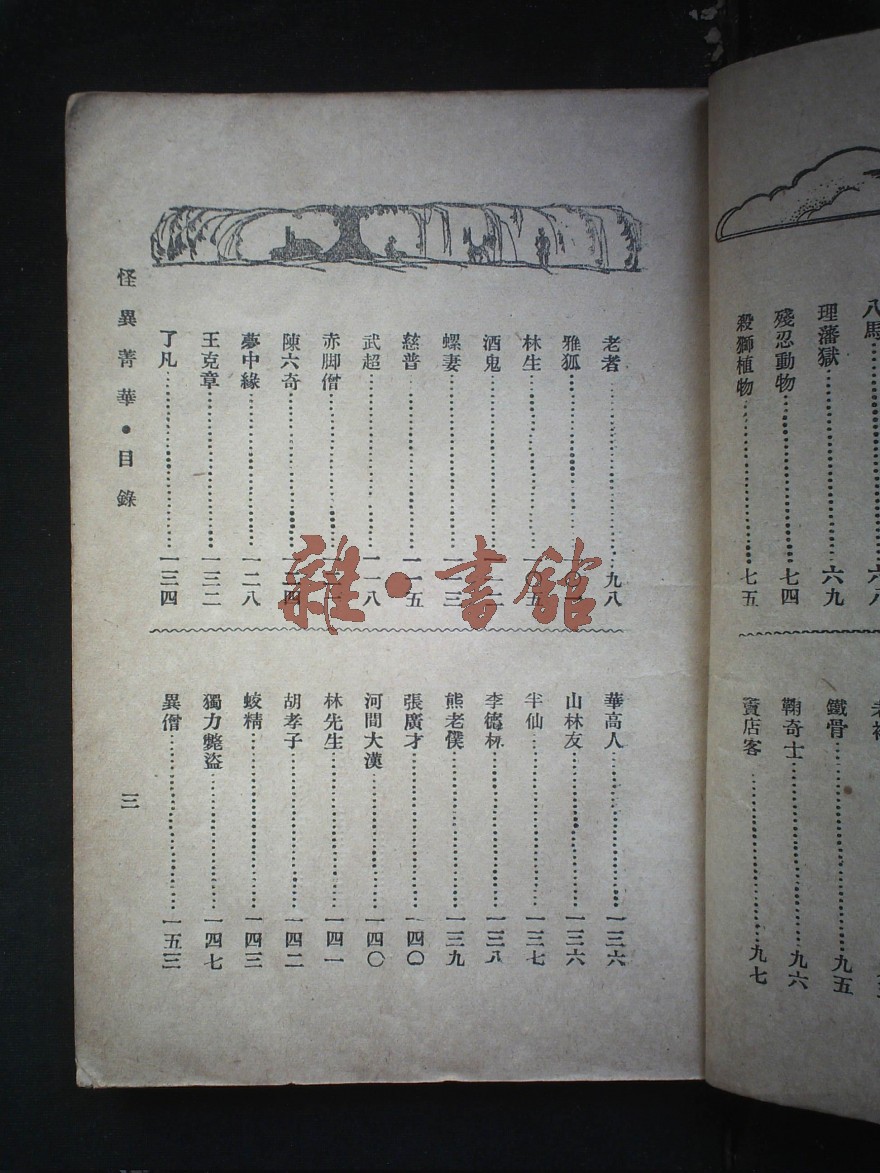 八馬……六八
理藩獄……六九
殘忍動物……七四
殺獅植物……七五
鐵骨……九五
鞠奇士……九六
賣店客……九七
老者……九八
雅狐……一
林生……一〇五
酒鬼……一一二
螺妻……一一三
慈普……一一五
武超……一一八
赤脚僧……一二一
陳六奇……一二四
夢中緣……一二八
王克章……一三二
了凡……一三四
華高人……一三六
山林友……一三六
半仙……一三七
李德杯……一三八
熊老僕……一三九
張廣才……一四〇
河間大漢……一四〇
林先生……一四一
胡孝子……一四二
蛟精……一四三
獨力斃盜……一四七
異僧……一五三
怪異菁華•目錄
三
雜•書館